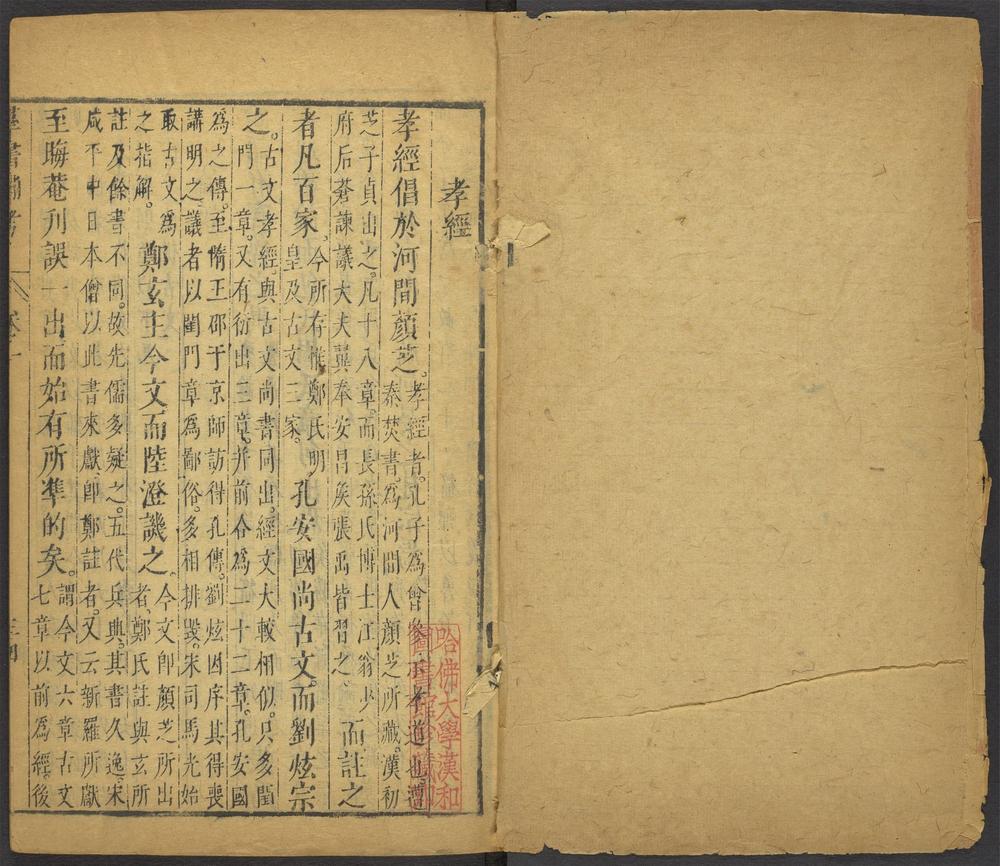 孝經
孝經倡於河間顏芝。孝經者。孔子為曾參不孝道也。遭
秦焚書。為河間人顏芝所藏。漢初
芝子貞出之。凡十八章。而長孫氏博士江翁少
府后蒼諫議大夫翼奉安昌矦張禹皆習之。而註之
者凡百家。今所有惟鄭氏明
皇及古文三家。孔安國尚古文。而劉炫宗
之。古文孝經。與古文尚書同出。經文大較相似。只多閨
門一章。又有衍出三章。并前合為二十二章。孔安國
為之傳。至隋王邵于京師訪得孔傳。劉炫因序其得喪
講明之。議者以閨門章為鄙俗。多相排毀。宋司馬光始
取古文為
之指解。鄭玄主今文而陸澄譏之。今文即顏芝所出
者。鄭氏註與玄所
註及餘書不同。故先儒多疑之。五代兵興。其書久逸。宋
咸平中日本僧以此書來獻。即鄭註者。又云新羅所獻
至晦菴刋誤一出而始有所凖的矣。謂今文六章古文
七章以前為經。後
哈佛大學漢和
圖書館珍藏印